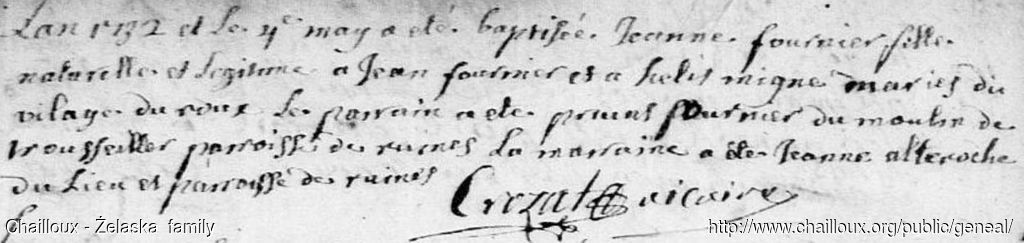 Lan 1732 et le 4e may a eté baptisée Jeanne fournier fille
naturelle et legitime a Jean fournier et a helis migne mariés du
vilage du roux le parrain a ete fournier du moulin de
trousseiller parroisse de ruines la marraine a éte Jeanne alteroche
du Lieu et parroisse de ruines
Crozat vicaire
Chailloux - Żelaska family
http://www.chailloux.org/public/geneal/